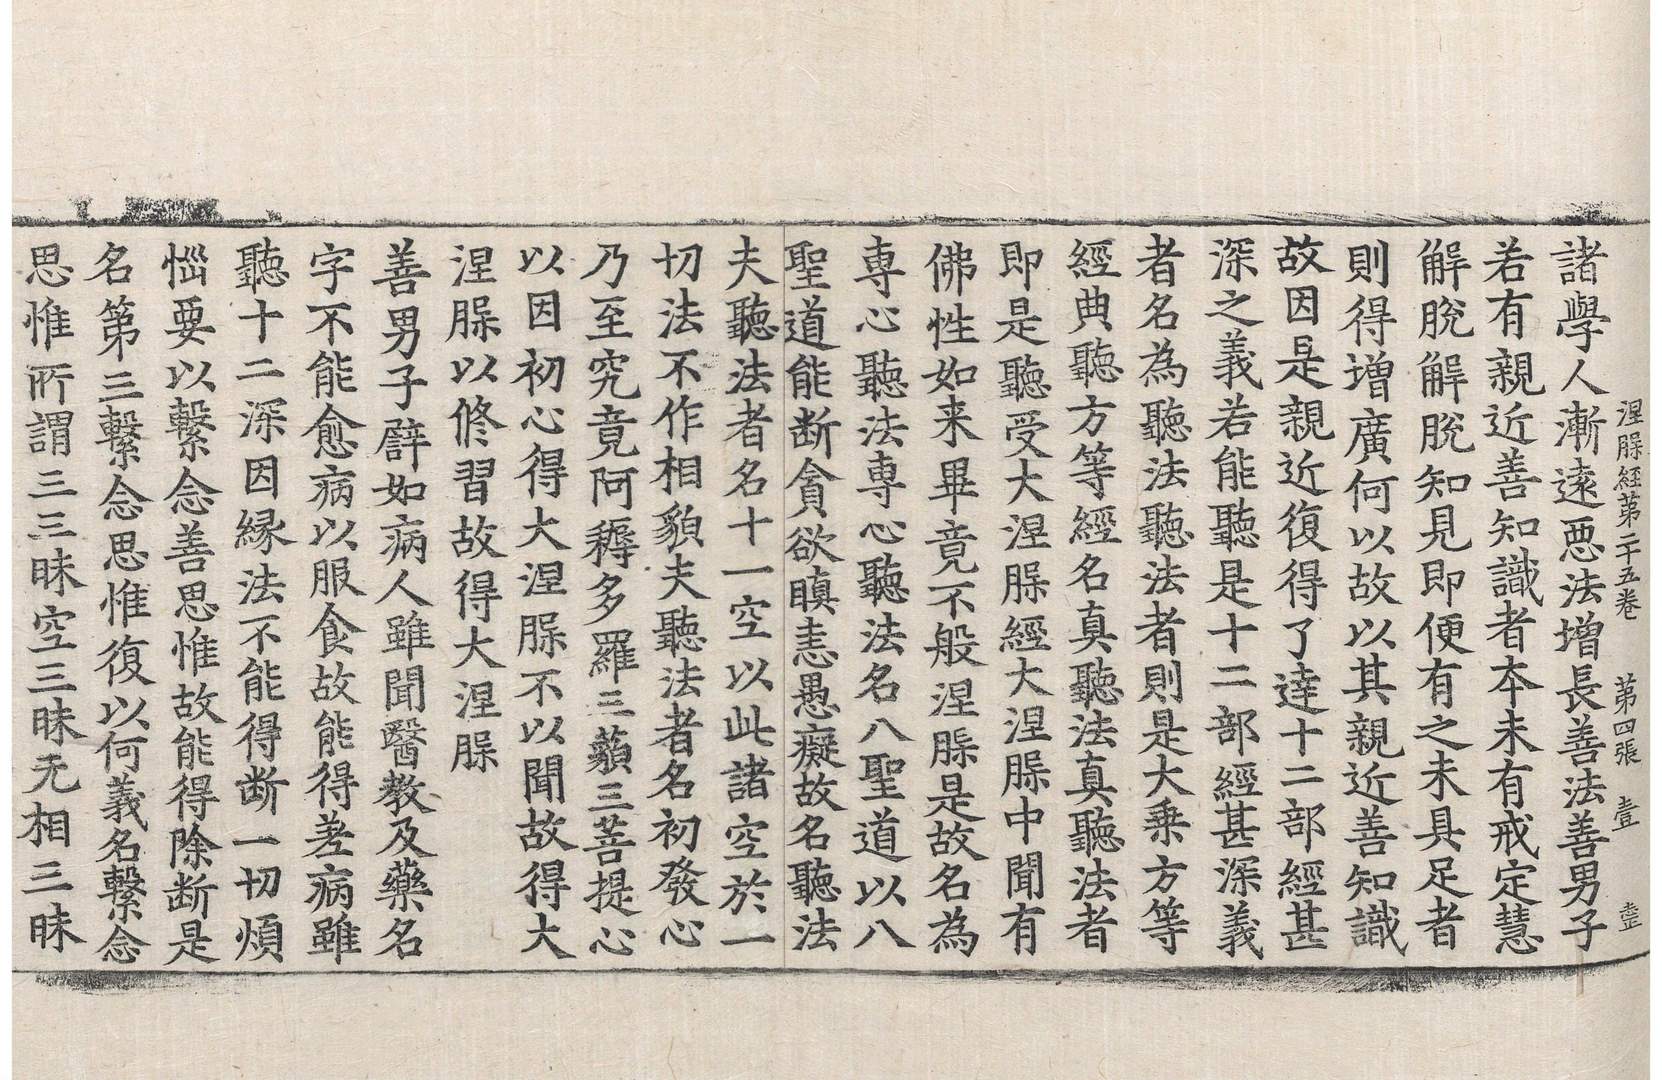 涅槃經第二十五卷　第四張　壹　壹
諸學人漸遠惡法增長善法善男子
若有親近善知識者本未有戒定慧
解脫解脫知見即便有之未具足者
則得增廣何以故以其親近善知識
故因是親近復得了達十二部經甚
深之義若能聽是十二部經甚深義
者名為聽法聽法者則是大乘方等
經典聽方等經名真聽法真聽法者
即是聽受大涅槃經大涅槃中聞有
佛性如来畢竟不般涅槃是故名為
專心聽法專心聽法名八聖道以八
聖道能断貪欲瞋恚愚癡故名聽法
夫聽法者名十一空以此諸空於一
切法不作相貌夫聽法者名初發心
乃至究竟阿耨多羅三藐三菩提心
以因初心得大涅槃不以聞故得大
涅槃以修習故得大涅槃
善男子譬如病人雖聞醫教及藥名
字不能愈病以服食故能得差病雖
聽十二深因緣法不能得断一切煩
惱要以繫念善思惟故能得除断是
名第三繫念思惟復以何義名繫念
思惟所謂三三昧空三昧无相三昧